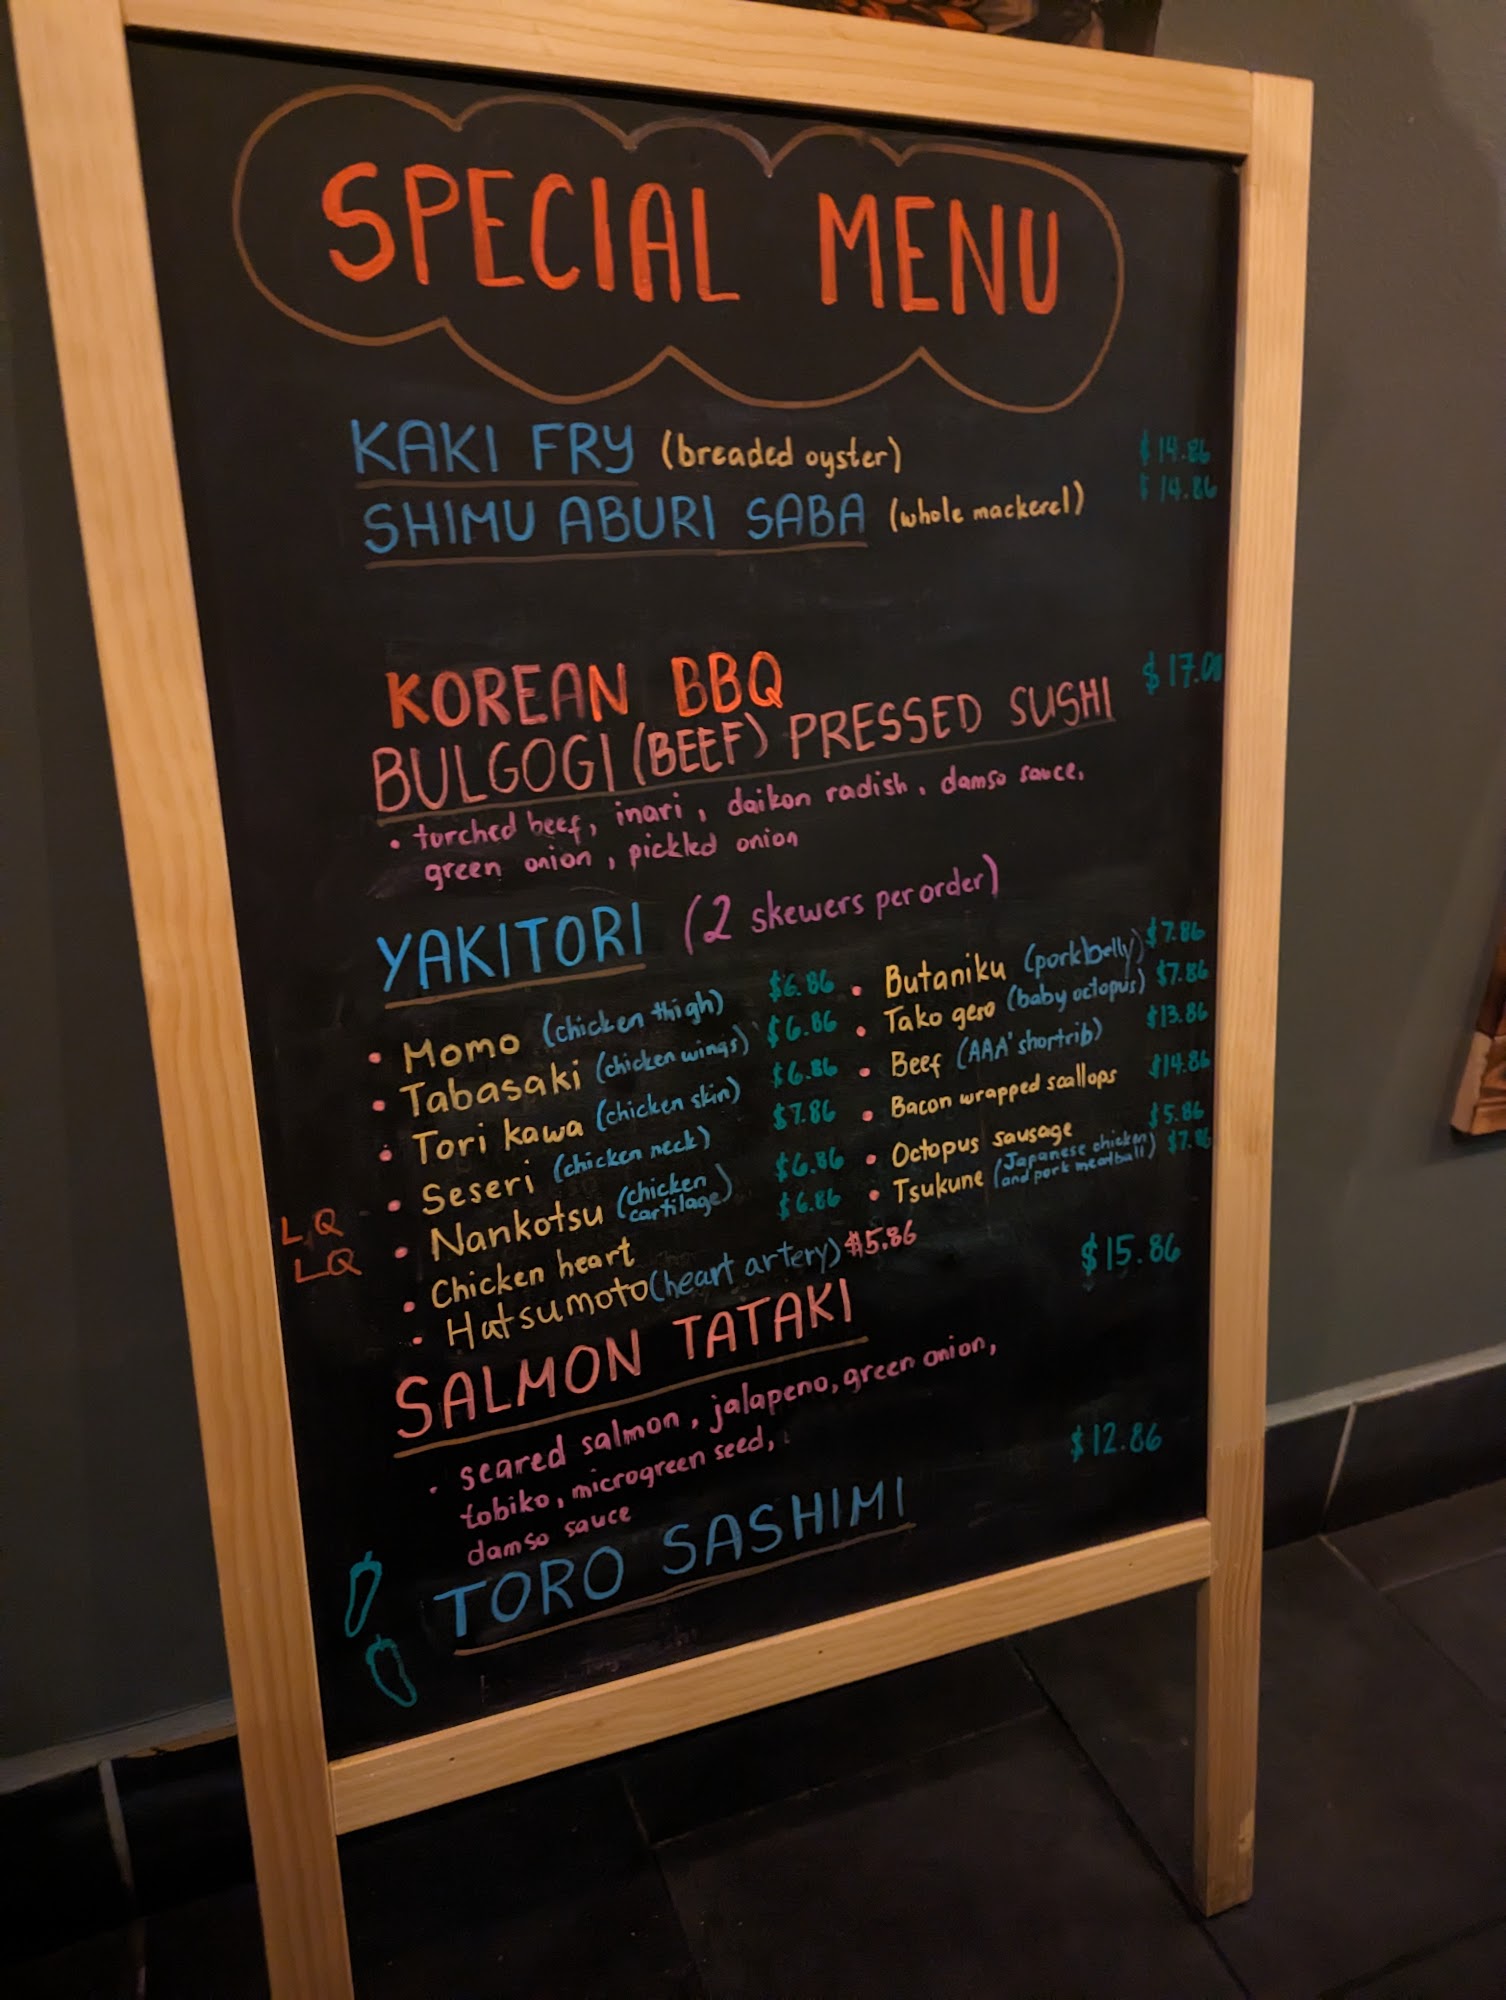 SPECIAL MENU
KAKI FRY (breaded oyster) $14.86
SHIMU ABURI SABA (whole mackerel) $14.86
KOREAN BBQ $17.00
BULGOGI (BEEF) PRESSED SUSHI
• torched beef, inari, daikon radish, damso sauce,
green onion, pickled onion
YAKITORI (2 skewers per order)
• Momo (chicken thigh) $6.86
• Tabasaki (chicken wings) $6.86
• Tori kawa (chicken skin) $6.86
• Seseri (chicken neck) $7.86
LQ • Nankotsu (chicken cartilage) $6.86
LQ • Chicken heart $6.86
• Hatsumoto (heart artery) $5.86
• Butaniku (pork belly) $7.86
• Tako gero (baby octopus) $7.86
• Beef (AAA' shortrib) $13.86
• Bacon wrapped scallops $14.86
• Octopus sausage $5.86
• Tsukune (Japanese chicken and pork meatball) $7.86
SALMON TATAKI $15.86
• seared salmon, jalapeno, green onion,
tobiko, microgreen seed,
damso sauce
TORO SASHIMI $12.86